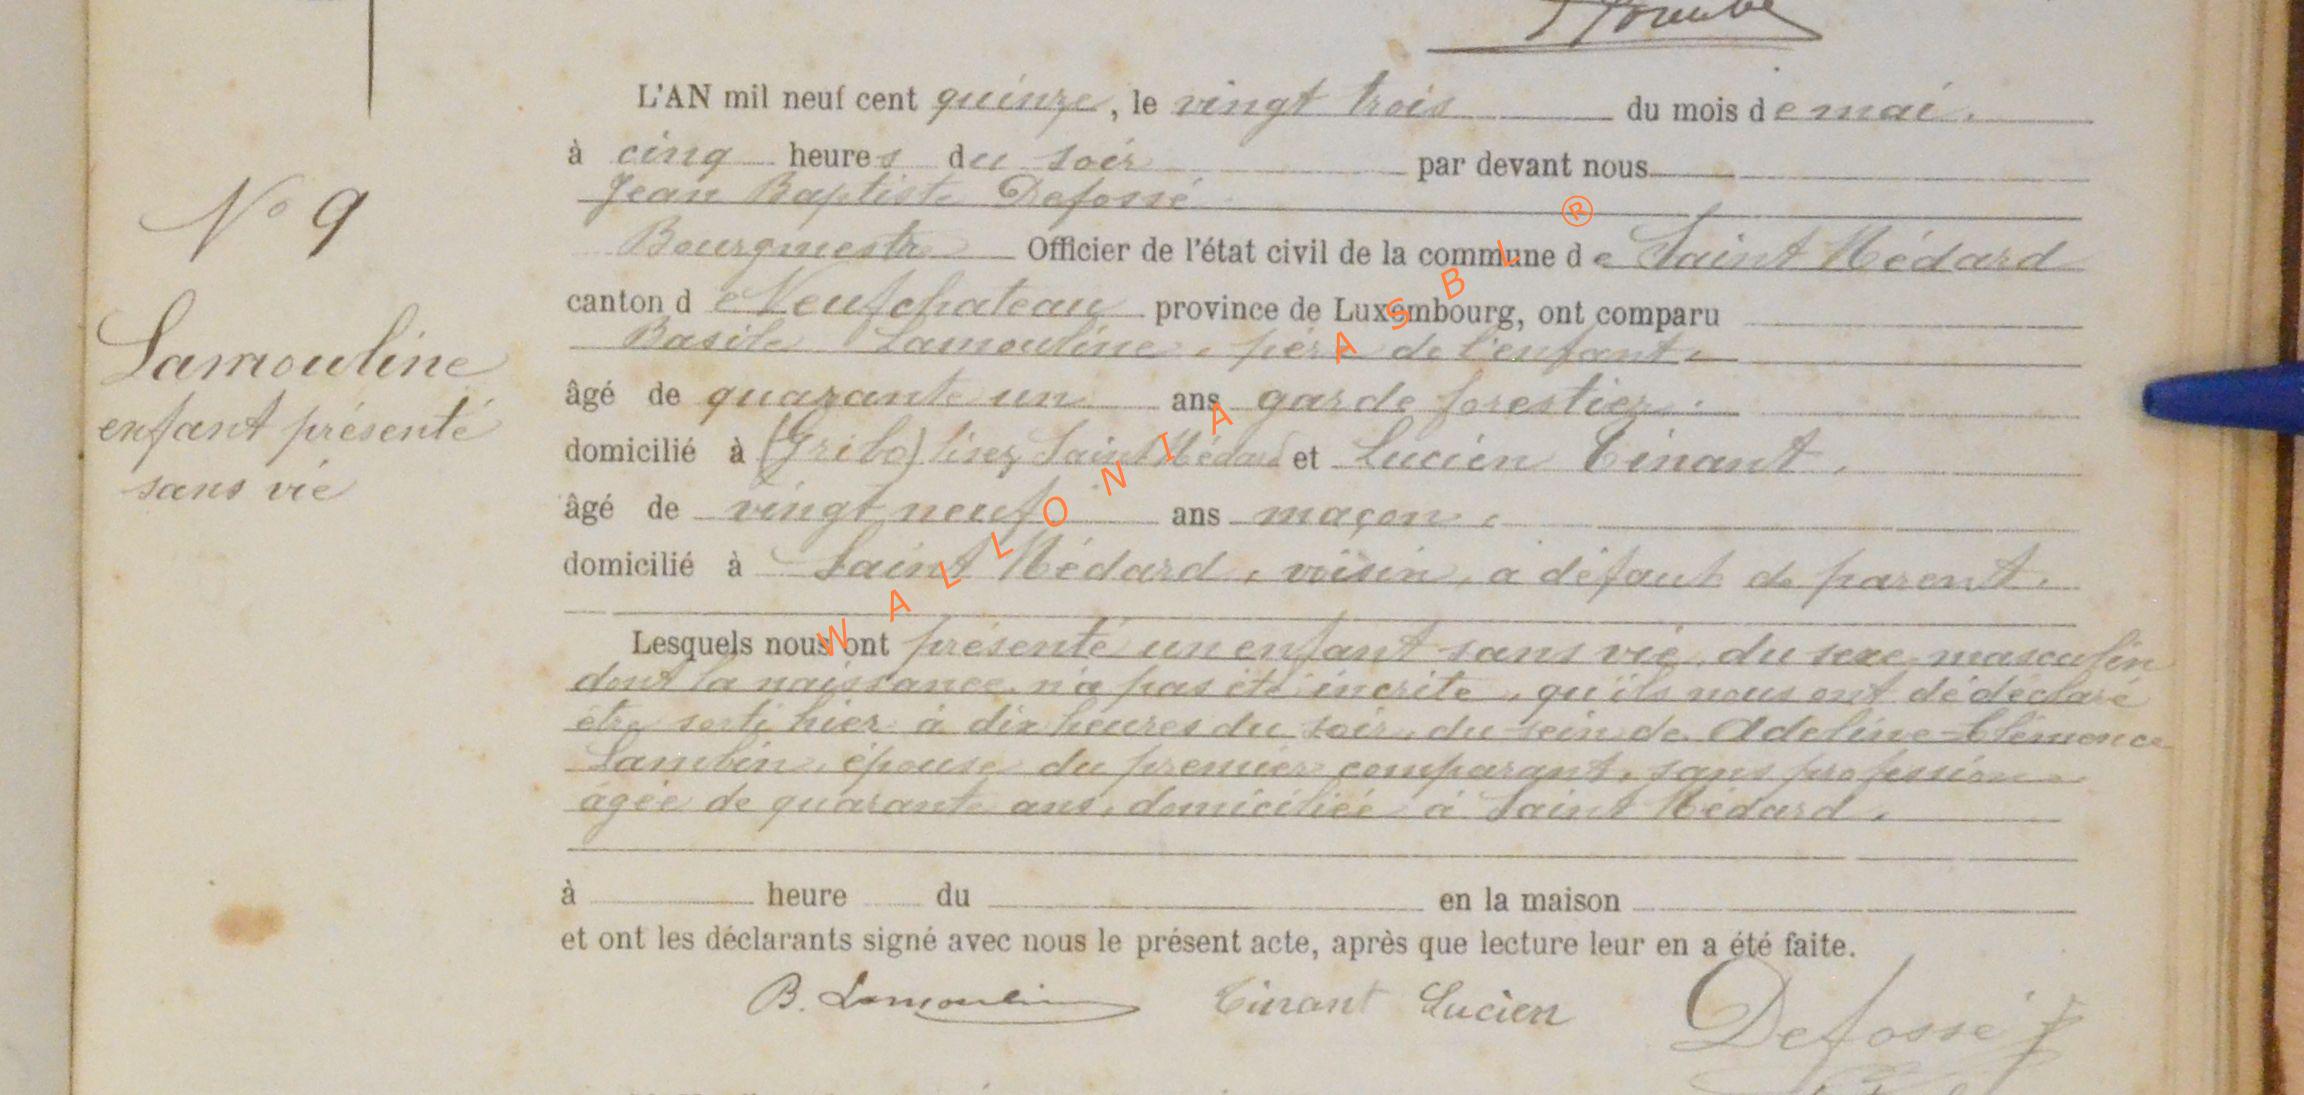 L'AN mil neuf cent quinze, le vingt trois du mois de mai.
à cinq heures du soir par devant nous
Jean Baptiste Defossé
Bourgmestre Officier de l'état civil de la commune de Saint Médard
canton de Neufchateau province de Luxembourg, ont comparu
Basile Lamouline, père de l'enfant,
âgé de quarante un ans garde forestier.
domicilié à (Gribo) lisez Saint Médard et Lucien Tinant,
âgé de vingt neuf ans maçon,
domicilié à Saint Médard, voisin, à défaut de parent.
Lesquels nous ont présenté un enfant sans vie, du sexe masculin
dont la naissance n'a pas été incrite, qu'ils nous ont dé déclaré
être sorti hier à dix heures du soir, du sein de Adeline-Clémence
Lambin, épouse du premier comparant, sans profession
âgée de quarante ans, domiciliée à Saint Médard.
à heure du en la maison
et ont les déclarants signé avec nous le présent acte, après que lecture leur en a été faite.
B. Lamouline Tinant Lucien Defossé J
N° 9
Lamouline
enfant présenté
sans vie
WALLONIA ASBL ®